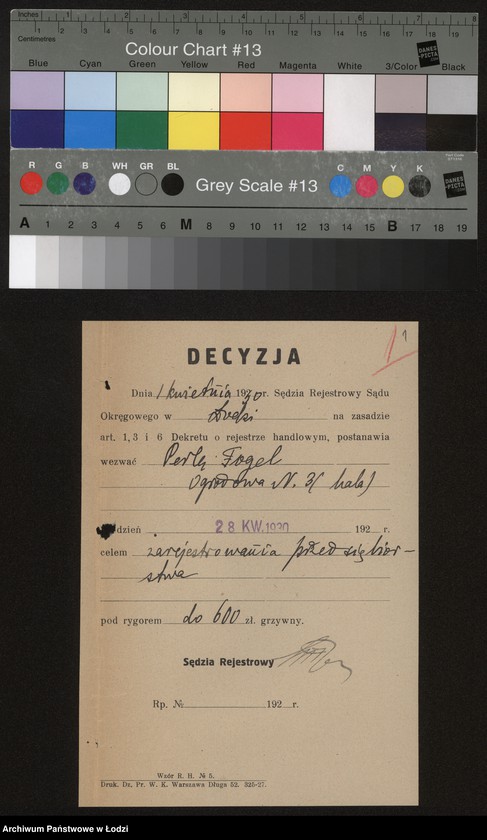 Inches 1 2 3 4 5 6 7 8
Centimetres 1 2 3 4 5 6 7 8 9 10 11 12 13 14 15 16 17 18 19
Colour Chart #13
DANES PICTA .COM
Blue Cyan Green Yellow Red Magenta White 3/Color Black
R G B WH GR BL C M Y K
Grey Scale #13
DANES PICTA .COM
A 1 2 3 4 5 6 M 8 9 10 11 12 13 14 15 B 17 18 19
1
DECYZJA
Dnia 1 kwietnia 1930 r. Sędzia Rejestrowy Sądu
Okręgowego w Łodzi na zasadzie
art. 1, 3 i 6 Dekretu o rejestrze handlowym, postanawia
wezwać Perlę Fogel
Ogrodowa N. 3 (hala)
dzień 28 KW. 1930 192 r.
celem zarejestrowania przedsiębior-
stwa
pod rygorem do 600 zł. grzywny.
Sędzia Rejestrowy
Rp. № 192 r.
Wzór R. H. № 5.
Druk. Dz. Pr. W. K. Warszawa Długa 52. 325-27.
Archiwum Państwowe w Łodzi